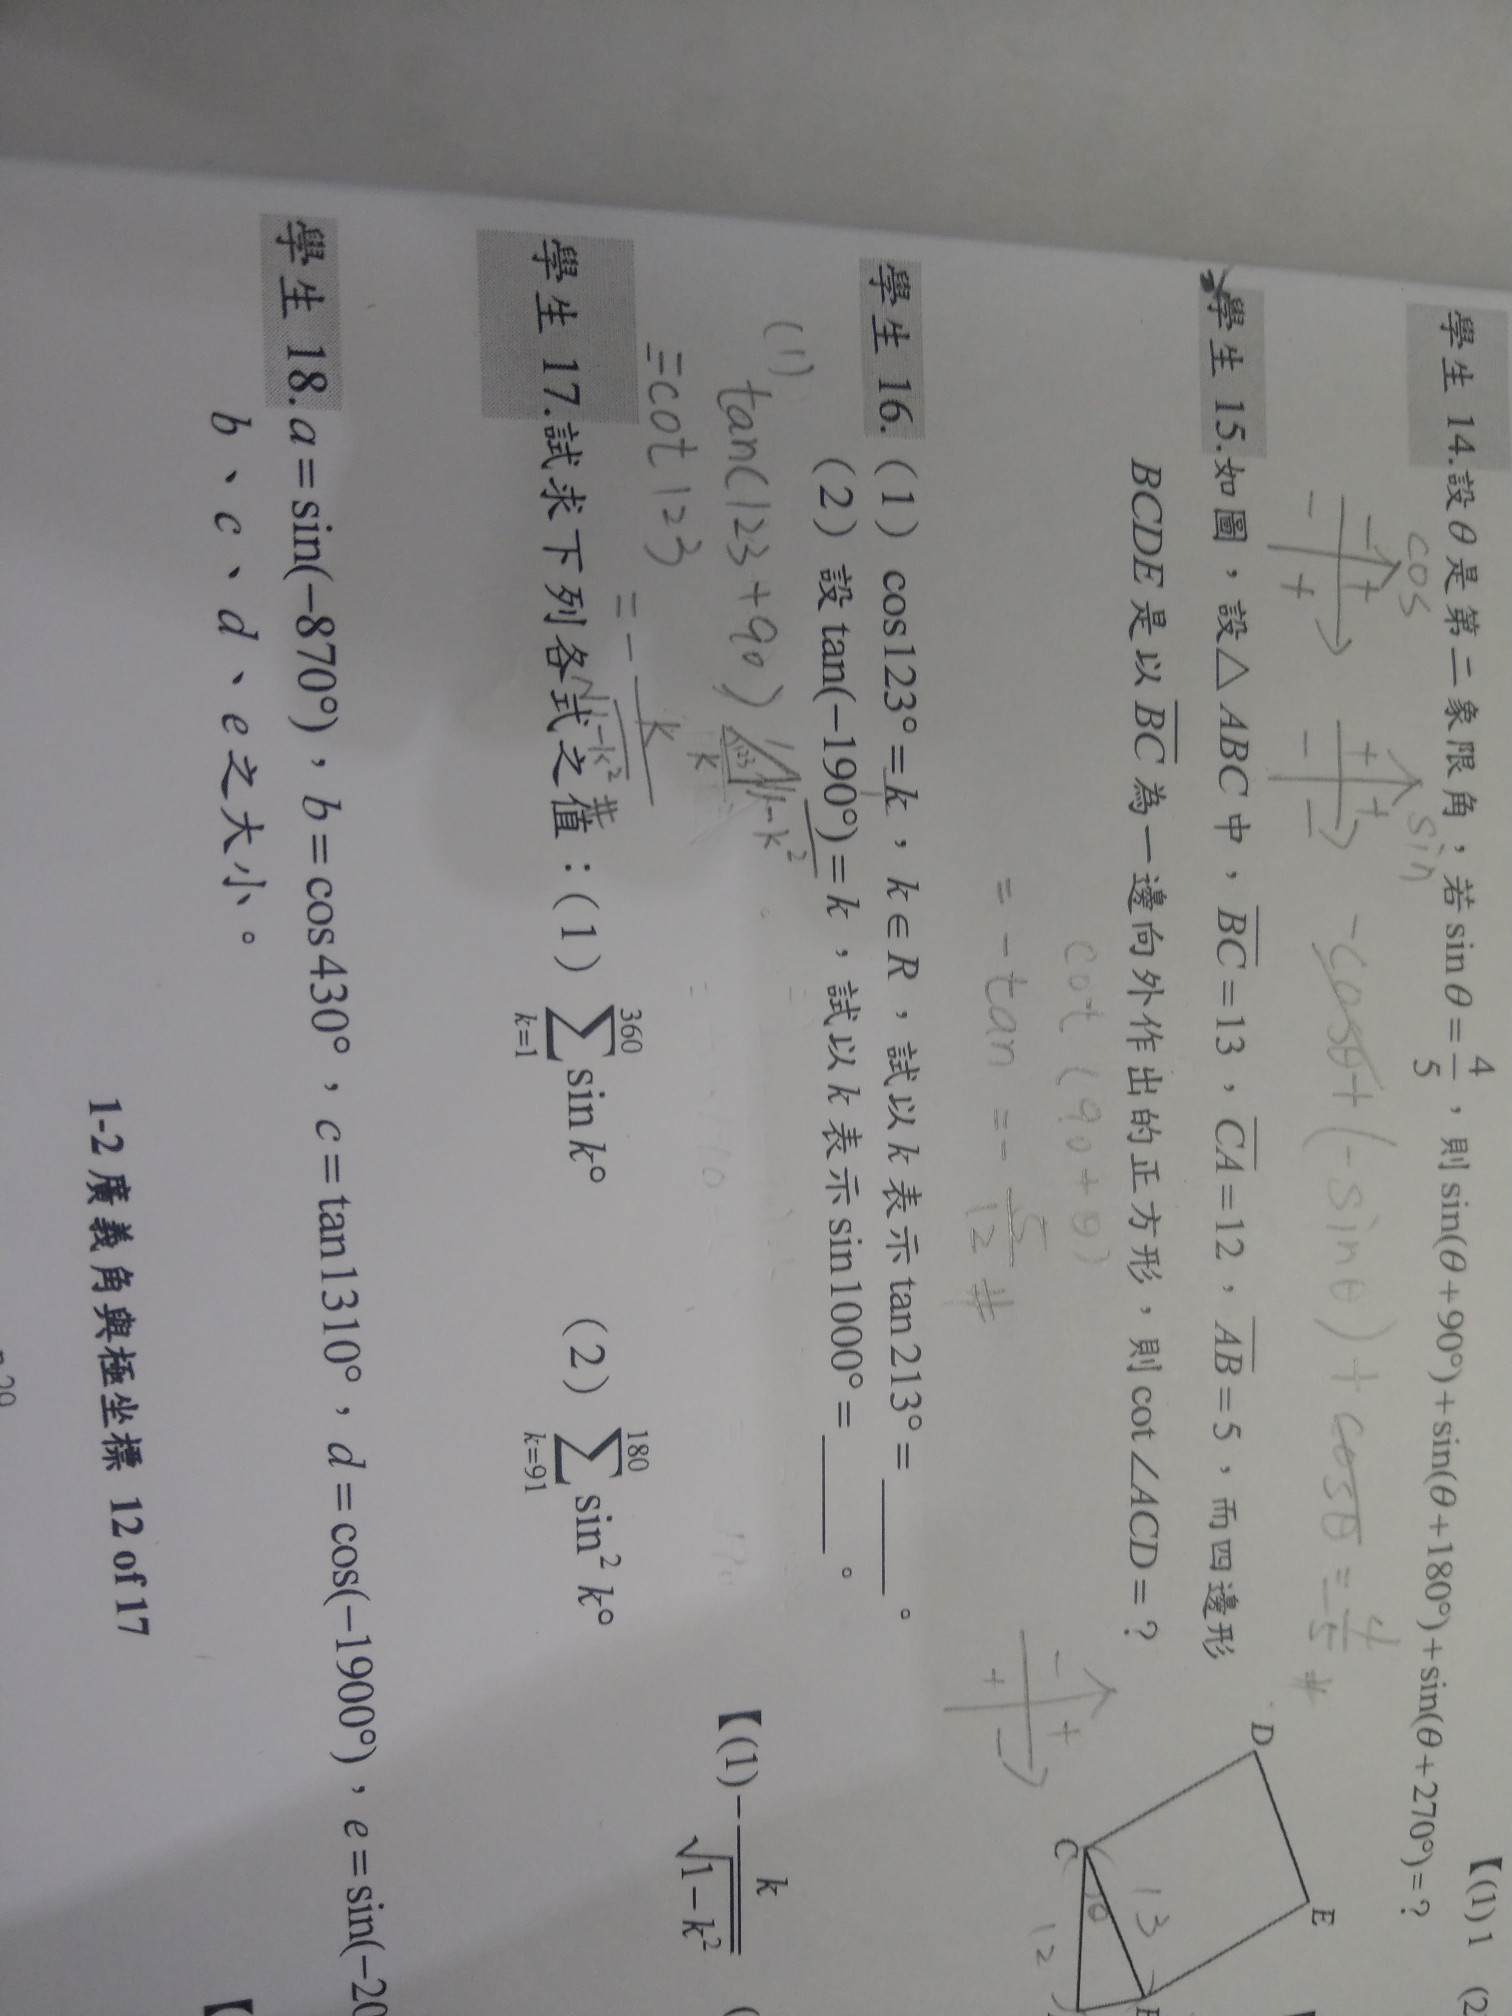 【(1)1 (2
學生 14.設θ是第二象限角，若sinθ=4/5，則sin(θ+90°)+sin(θ+180°)+sin(θ+270°)=？
cos sin
-cosθ+(-sinθ)+cosθ=-4/5 #
學生 15.如圖，設△ABC中，BC=13，CA=12，AB=5，而四邊形
BCDE是以BC為一邊向外作出的正方形，則cot∠ACD=？
cot(90+θ)
=-tan=-5/12 #
D
E
C
θ
13
12
學生 16.（1）cos123°=k，k∈R，試以k表示tan213°=______。
（2）設tan(-190°)=k，試以k表示sin1000°=______。
(1)
tan(123+90)
√1-k²
123
k
=cot123
=-k/√1-k² #
【(1)-k/√1-k² (
學生 17.試求下列各式之值：（1）∑_{k=1}^{360} sin k° （2）∑_{k=91}^{180} sin² k°
學生 18.a=sin(-870°)，b=cos430°，c=tan1310°，d=cos(-1900°)，e=sin(-20
b、c、d、e之大小。
【
1-2廣義角與極坐標 12 of 17